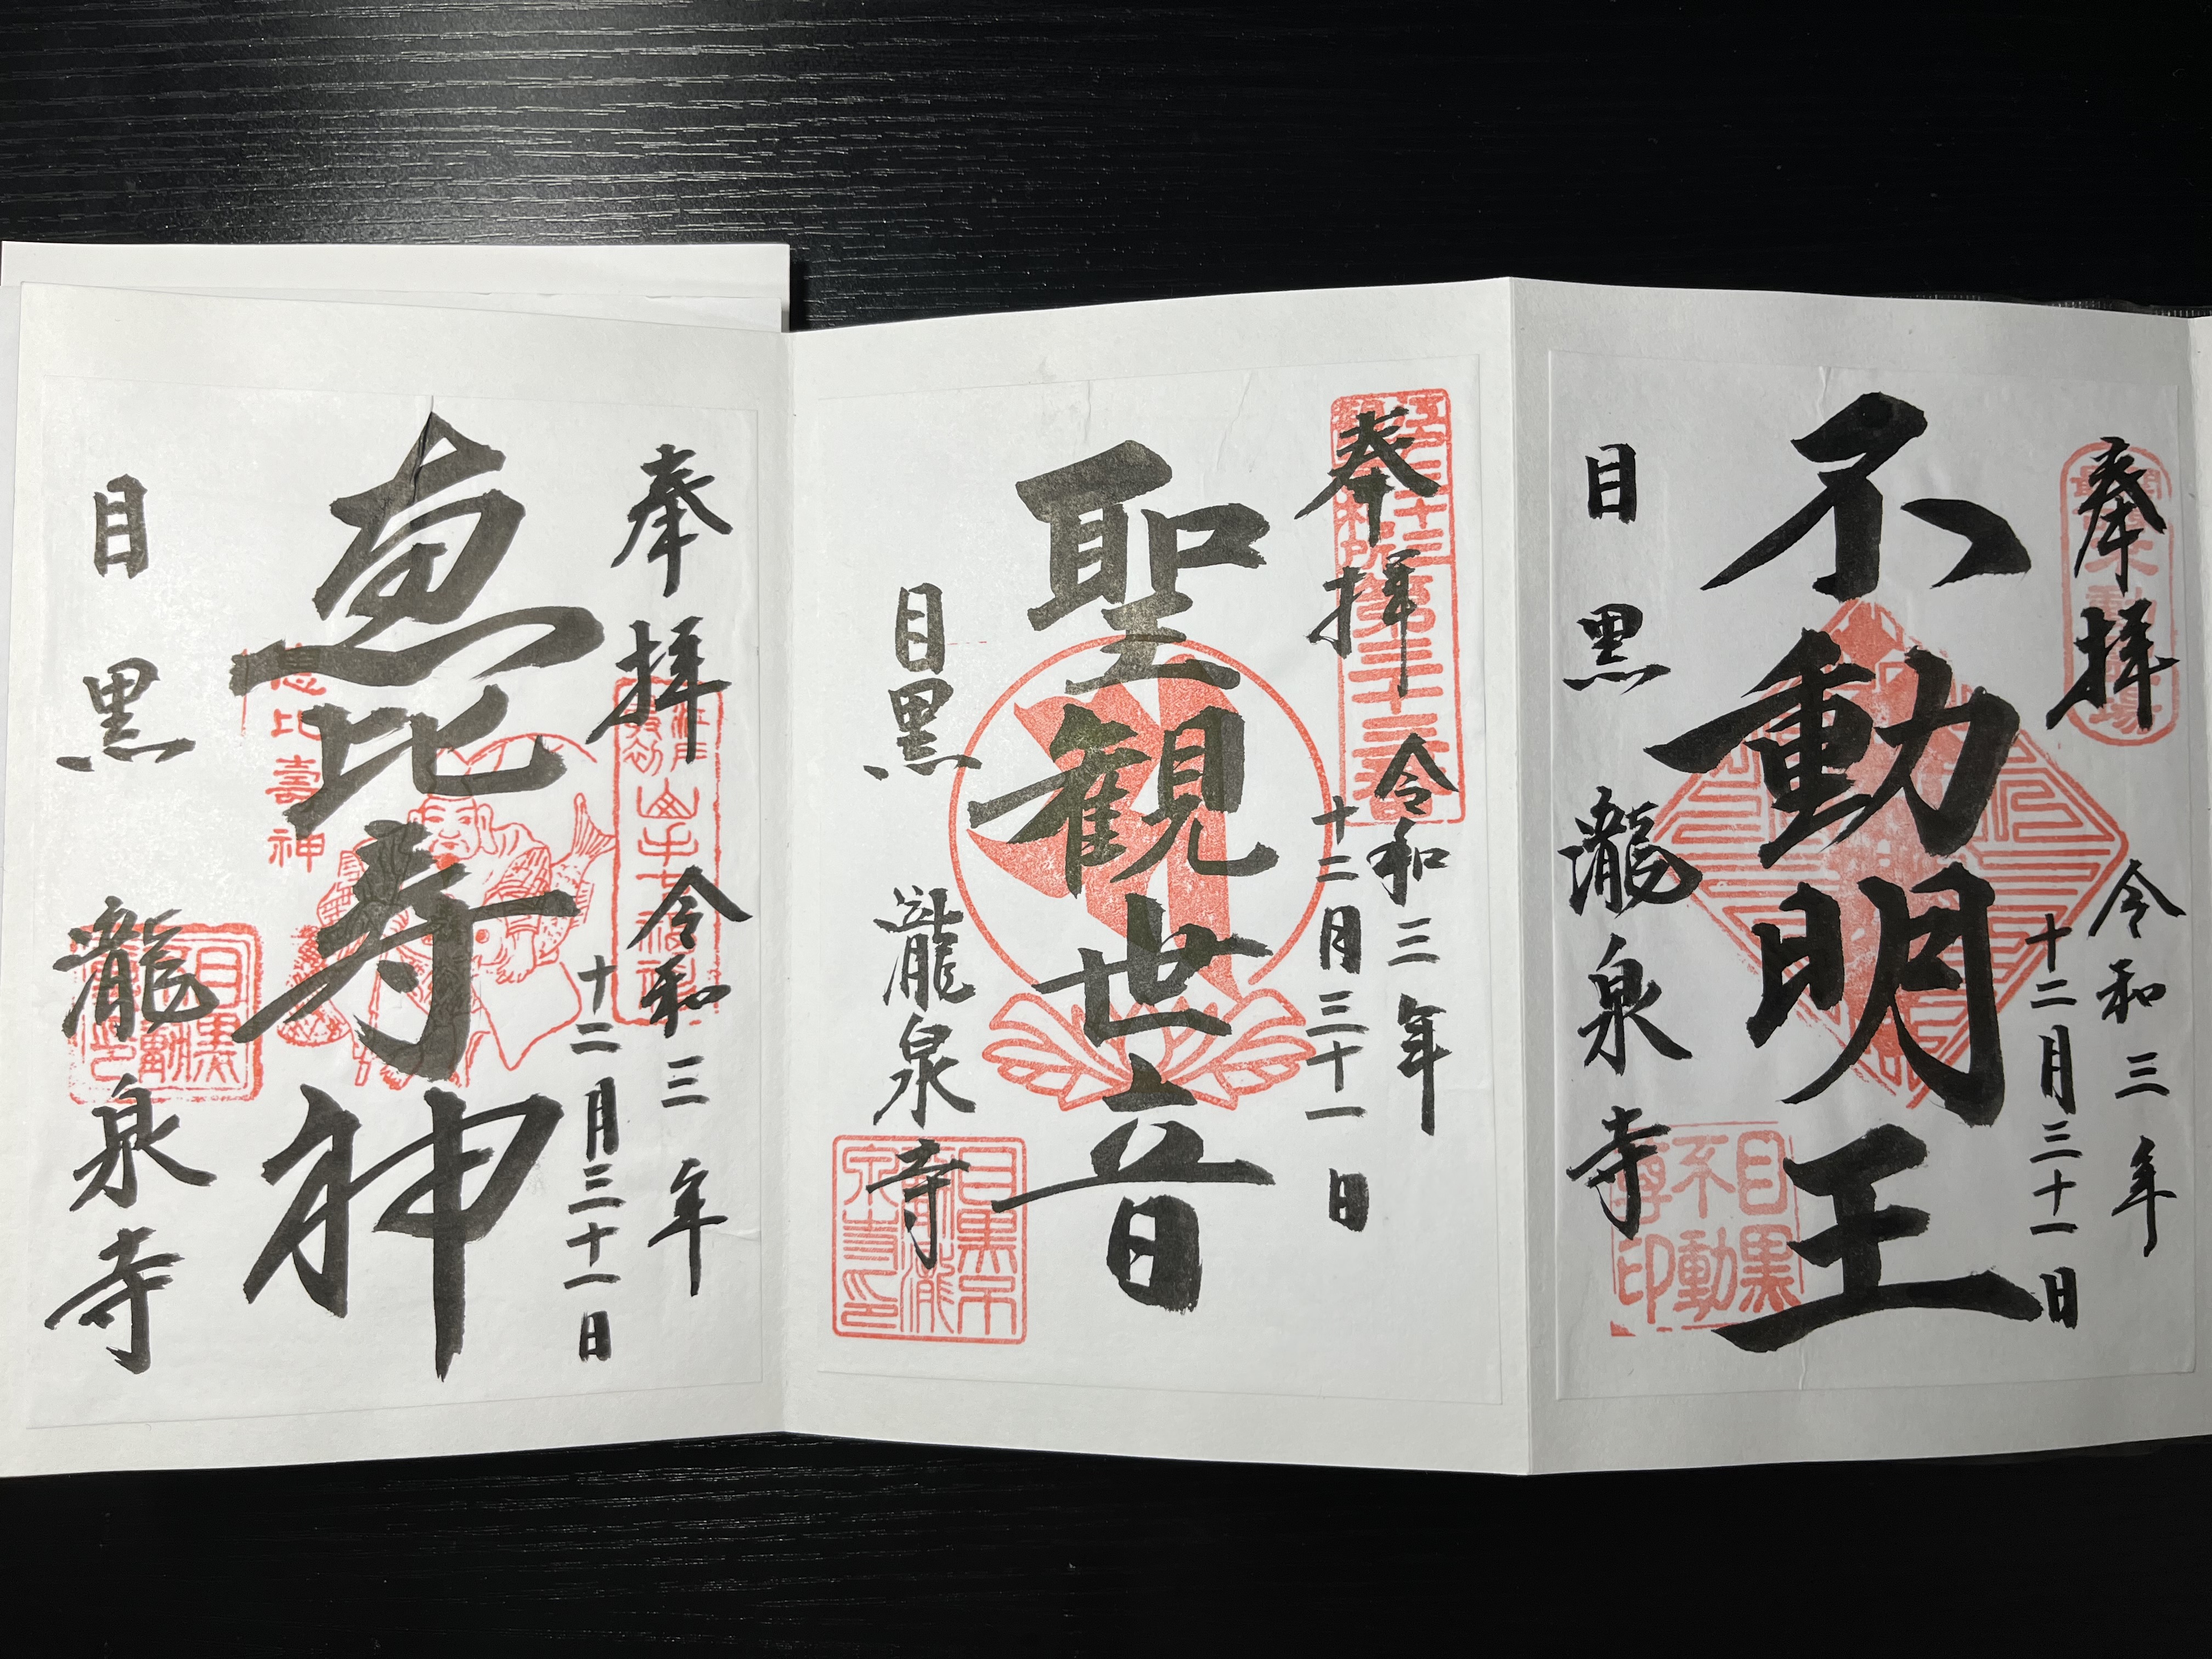 奉拝
令和三年
十二月三十一日
不動明王
目黒
瀧泉寺
目黒
不動
尊印
奉拝
令和三年
十二月三十一日
聖観世音
目黒
瀧泉寺
奉拝
令和三年
十二月三十一日
恵比寿神
恵比壽神
目黒
瀧泉寺